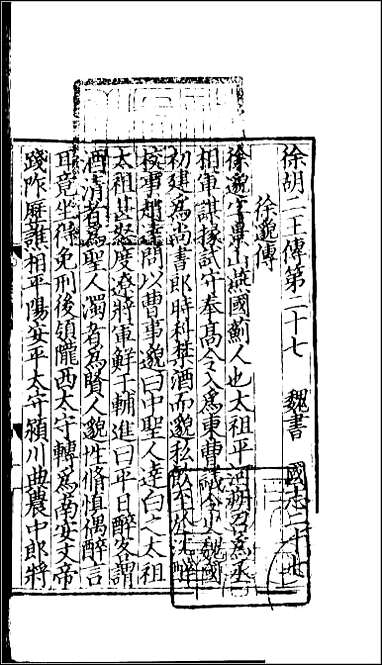 徐胡二王傳第二十七　魏書　國志二十七
徐邈傳
徐邈字景山燕國薊人也太祖平河朔召爲丞
相軍謀掾試守奉高令入爲東曹議令史魏國
初建爲尚書郎時科禁酒而邈私飲至於沈醉
校事趙達問以曹事邈曰中聖人達白之太祖
太祖甚怒度遼將軍鮮于輔進曰平日醉客謂
酒清者爲聖人濁者爲賢人邈性脩慎偶醉言
耳竟坐得免刑後領隴西太守轉爲南安文帝
踐阼歷譙相平陽安平太守潁川典農中郎將